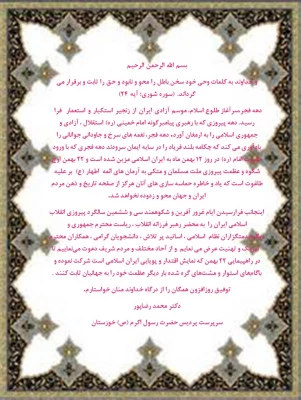 بسم الله الرحمن الرحیم
و خداوند به کلمات وحی خود سخن باطل را محو و نابود و حق را ثابت و برقرار می
گرداند. (سوره شوری: آیه ۲۴)
دهه فجر سر آغاز طلوع اسلام، موسم آزادی ایران از زنجیر استکبار و استعمار فرا
رسید. دهه پیروزی که با رهبری پیامبرگونه امام خمینی (ره) استقلال ، آزادی و
جمهوری اسلامی را به ارمغان آورد، دهه فجر، نغمه های سرخ و جاودانی جوانانی را
یادآوری می کند که چکامه بلند فریاد را در سایه ایمان سرودند دهه فجری که با ورود
امام (ره) در روز ۱۲ بهمن ماه به ایران اسلامی مزین شده است و ۲۲ بهمن اوج
شکوه و عظمت پیروزی ملت مسلمان و متکی به آرمان های ائمه اطهار (ع) بر علیه
طاغوت است که یاد و خاطره حماسه سازی های آنان هرگز از صفحه تاریخ و ذهن مردم
ایران و جهان محو و زدوده نخواهد شد.
اینجانب فرارسیدن ایام غرور آفرین و شکوهمند سی و ششمین سالگرد پیروزی انقلاب
اسلامی ایران را به محضر رهبر فرزانه انقلاب ، ریاست محترم جمهوری و
خدمتگزاران نظام اسلامی ، اساتید پر تلاش ، دانشجویان گرامی ، همکاران محترم
و تهنیت عرض می نمایم و از آحاد مختلف و مردم شریف دعوت می نماییم تا
در راهپیمایی ۲۲ بهمن که نمایش اقتدار و پویایی ایران اسلامی است شرکت نموده و
باگام‌های استوار و مشت‌های گره شده بار دیگر عظمت خود را به جهانیان ثابت کنند .
توفیق روزافزون همگان را از درگاه خداوند منان خواستارم.
دکتر محمد رضاپور
سرپرست پردیس حضرت رسول اکرم (ص) خوزستان